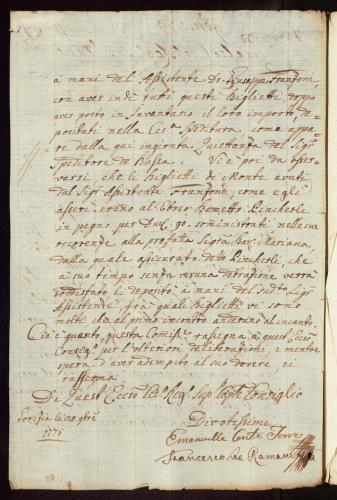 à mani del Assistente Sr. Giuseppe Franfoni,
con aver indi tutti questi Biglietti doppo
aver posto in Inventario il loro importo, de-
positati nella Ces.a Speditura come appa-
re dalla qui ingionta Quietanza del Sigr
Speditore de Basea. Vi è poi da osser-
varsi che li Biglietti di Monte avuti
dal Sigr Assistente Franfoni, come egli
asserì erano al Ebreo Benetto Pincherli
in pegno per Duc. 90. somministrati nelle sue
occorenze alla prefata Sigra Bar. Mariana,
dalla quale assicurato detto Pincherli, che
a suo tempo senza veruna detrazione verrà
il deposito à mani del sudto Sigr
Assistente, frà quali Biglietti vi sono
molti che al primo incontro anderano al incanto
Ciò è quanto questa Comiss.e rassegna à quest' Eccso
Conseg.o per l'ulteriori deliberazioni, e mentre
spera d'aver adempito al suo dovere si
rafferma
Di Quest' Eccso Ces.o Reg.o Sup. Consiglio
Divotissime
Gorizia li 20. 9bre
1775
Emanuelle Conte Torre
Francesco de Romani